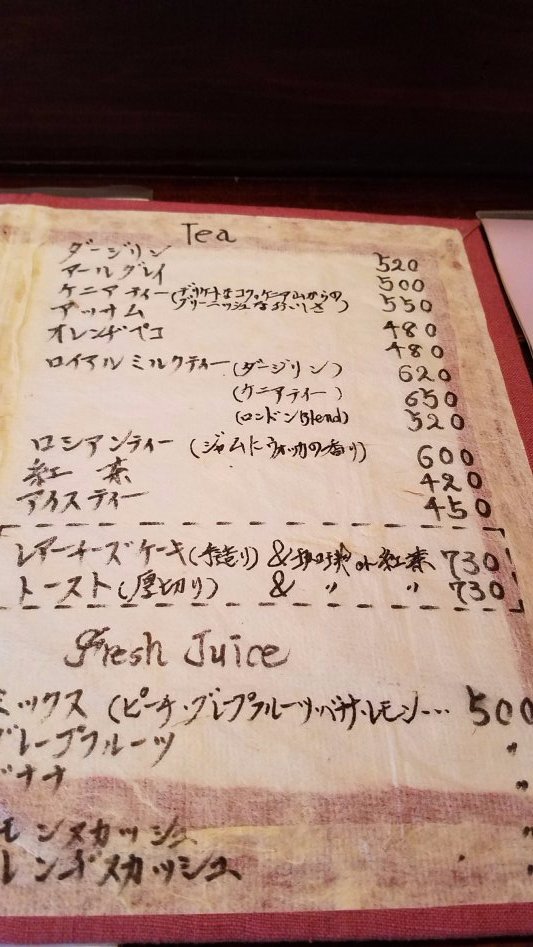 Tea
ダージリン 520
アールグレイ 500
ケニアティー(デリケートなコク。ケニア山からの 550
グリーニッシュなおいしさ)
アッサム 480
オレンヂペコ 480
ロイアルミルクティー(ダージリン) 620
(ケニアティー) 650
(ロンドンblend) 520
ロシアンティー(ジャムにウォッカの香り) 600
紅茶 420
アイスティー 450
レアーチーズケーキ(手造り) & 珈琲 or 紅茶 730
トースト(厚切り) & 〃 〃 730
Fresh Juice
ミックス (ピーチ・グレープフルーツ・バナナ・レモン… 500
グレープフルーツ 〃
バナナ 〃
モンスカッシュ 〃
レンヂスカッシュ 〃